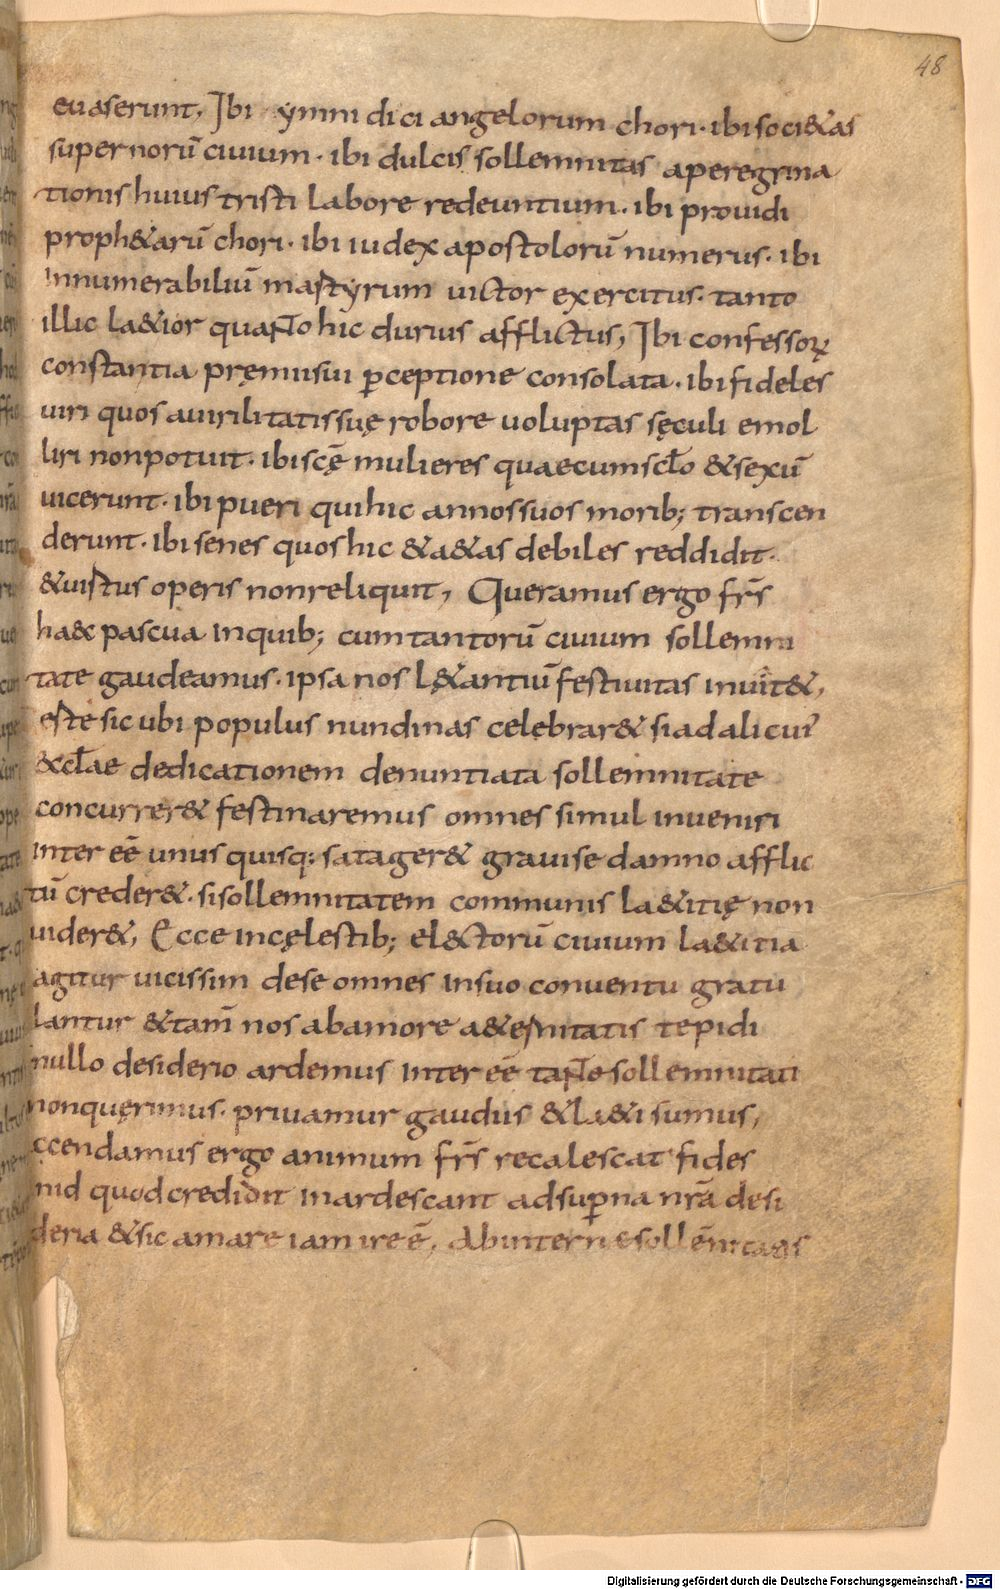 48
euaserunt, Ibi ymni dici angelorum chori· ibi soci&as
supernorū ciuium· ibi dulcis sollemnitas aperegrina
tionis huius tristi labore redeuntium· ibi prouidi
proph&arū chori· ibi iudex apostolorū numerus· ibi
innumerabiliū martyrum uictor exercitus· tanto
illic la&ior quanto hic durius afflictus, Ibi confessorꝝ
constantia pręmii sui ꝑceptione consolata· ibi fideles
uiri quos auirilitatis suę robore uoluptas sęculi emol
liri non potuit· ibi scę̄ mulieres quae cum scl̄o & sexū
uicerunt· ibi pueri qui hic annos suos morib; transcen
derunt· ibi senes quos hic & a&as debiles reddidit·
& uirtus operis non reliquit, Queramus ergo fr̄s
haec pascua inquib; cum tantorū ciuium sollemni
tate gaudeamus· ipsa nos l&antiū festiuitas inuit&,
este sicubi populus nundinas celebrar& si ad alicui'
&cl̄ae dedicationem denuntiata sollemnitate
concurrer& festinaremus omnes simul inueniri
inter eē unus quisq: satager& graui se damno afflic
tū creder&· si sollemnitatem communis la&itię non
uider&, Ecce incęlestib; electorū ciuium la&itia
agitur uicissim de se omnes in suo conuentu gratu
lantur & tam̄ nos abamore a&ernitatis tepidi
nullo desiderio ardemus inter eē tanto sollemnitati
non quęrimus· priuamur gaudiis & la&i sumus,
ccendamus ergo animum fr̄s recalescat fides
inid quod credidit inardescant ad suꝑna nr̄a desi
deria & sic amare iam ire ē, Ab interne sollēnitatis
Digitalisierung gefördert durch die Deutsche Forschungsgemeinschaft - DFG